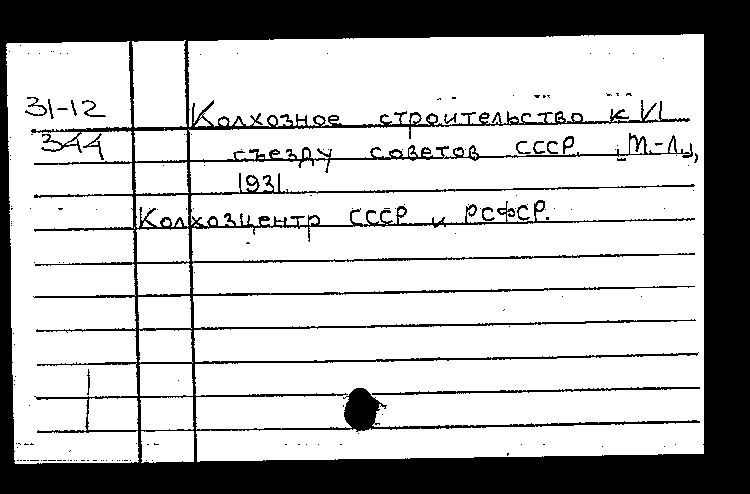 31-12
344
Колхозное строительство к VI
съезду советов СССР. [М.-Л.],
1931.
Колхозцентр СССР и РСФСР.